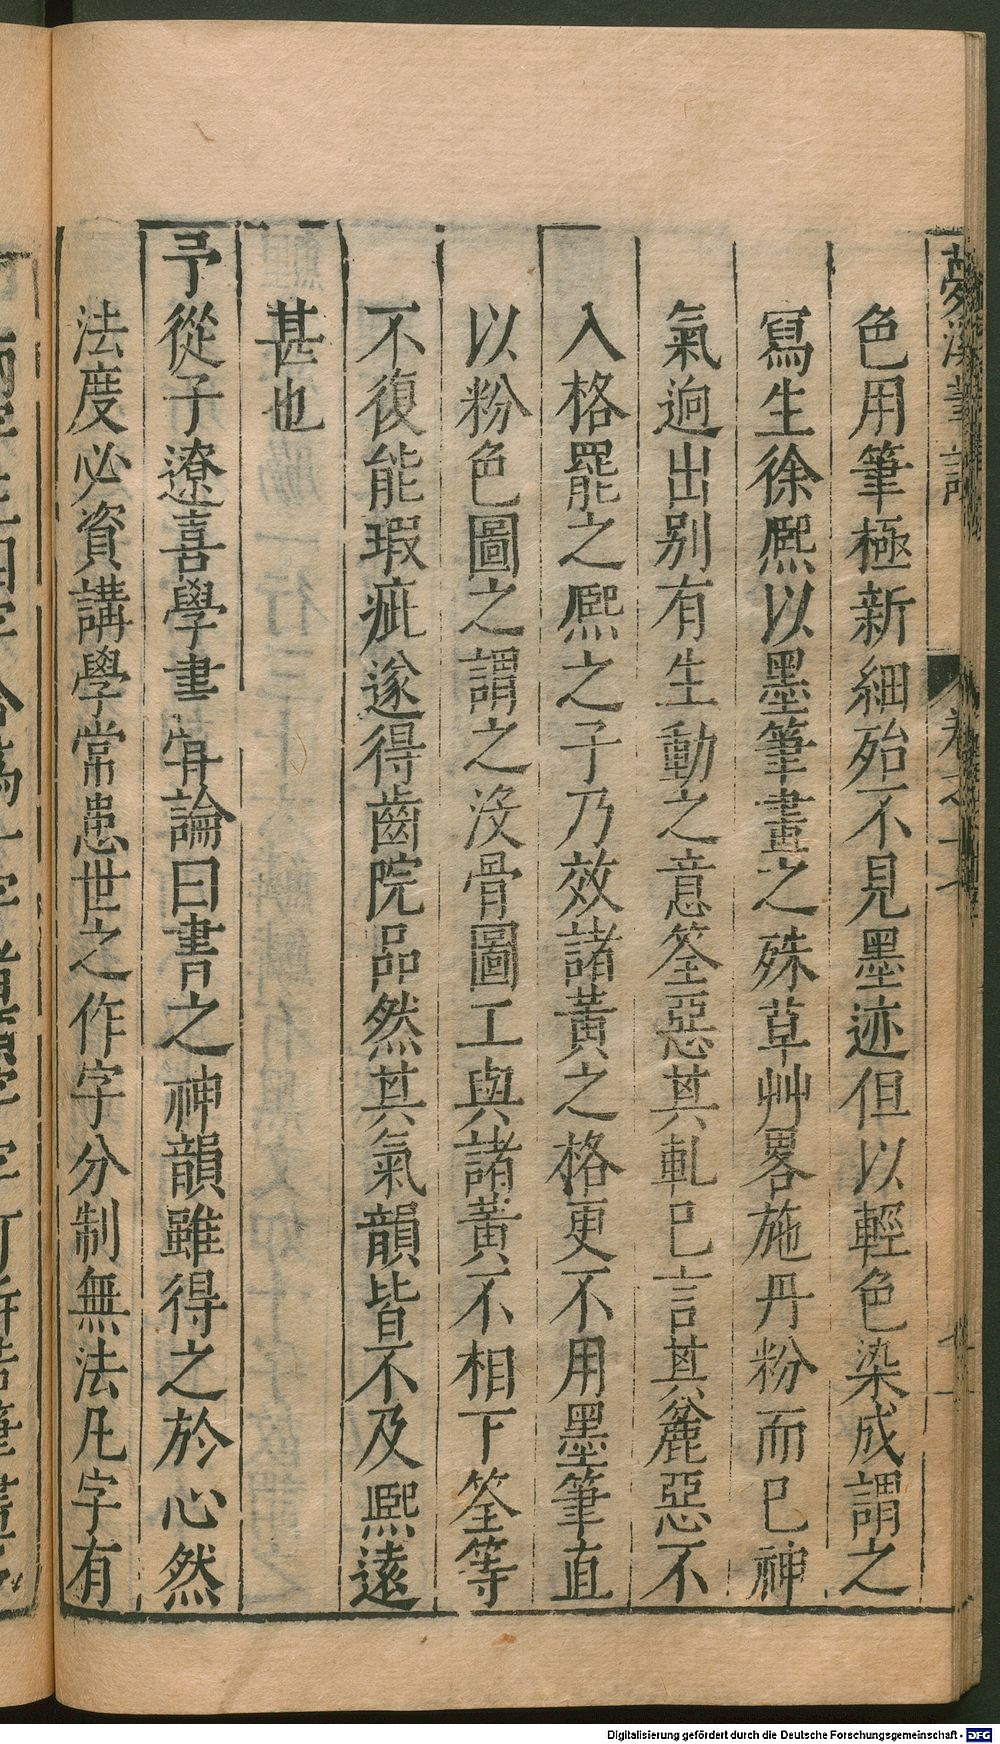 夢溪筆談
卷之十七
色用筆極新細殆不見墨迹但以輕色染成謂之
寫生徐熈以墨筆畫之殊草艸畧施丹粉而已神
氣迥出别有生動之意筌惡其軋已言其麄惡不
入格罷之熈之子乃效諸黃之格更不用墨筆直
以粉色圖之謂之沒骨圖工與諸黃不相下筌等
不復能瑕疵遂得齒院品然其氣韻皆不及熈遠
甚也
予從子遼喜學書嘗論曰書之神韻雖得之於心然
法度必資講學常患世之作字分制無法凡字有
Digitalisierung gefördert durch die Deutsche Forschungsgemeinschaft - DFG